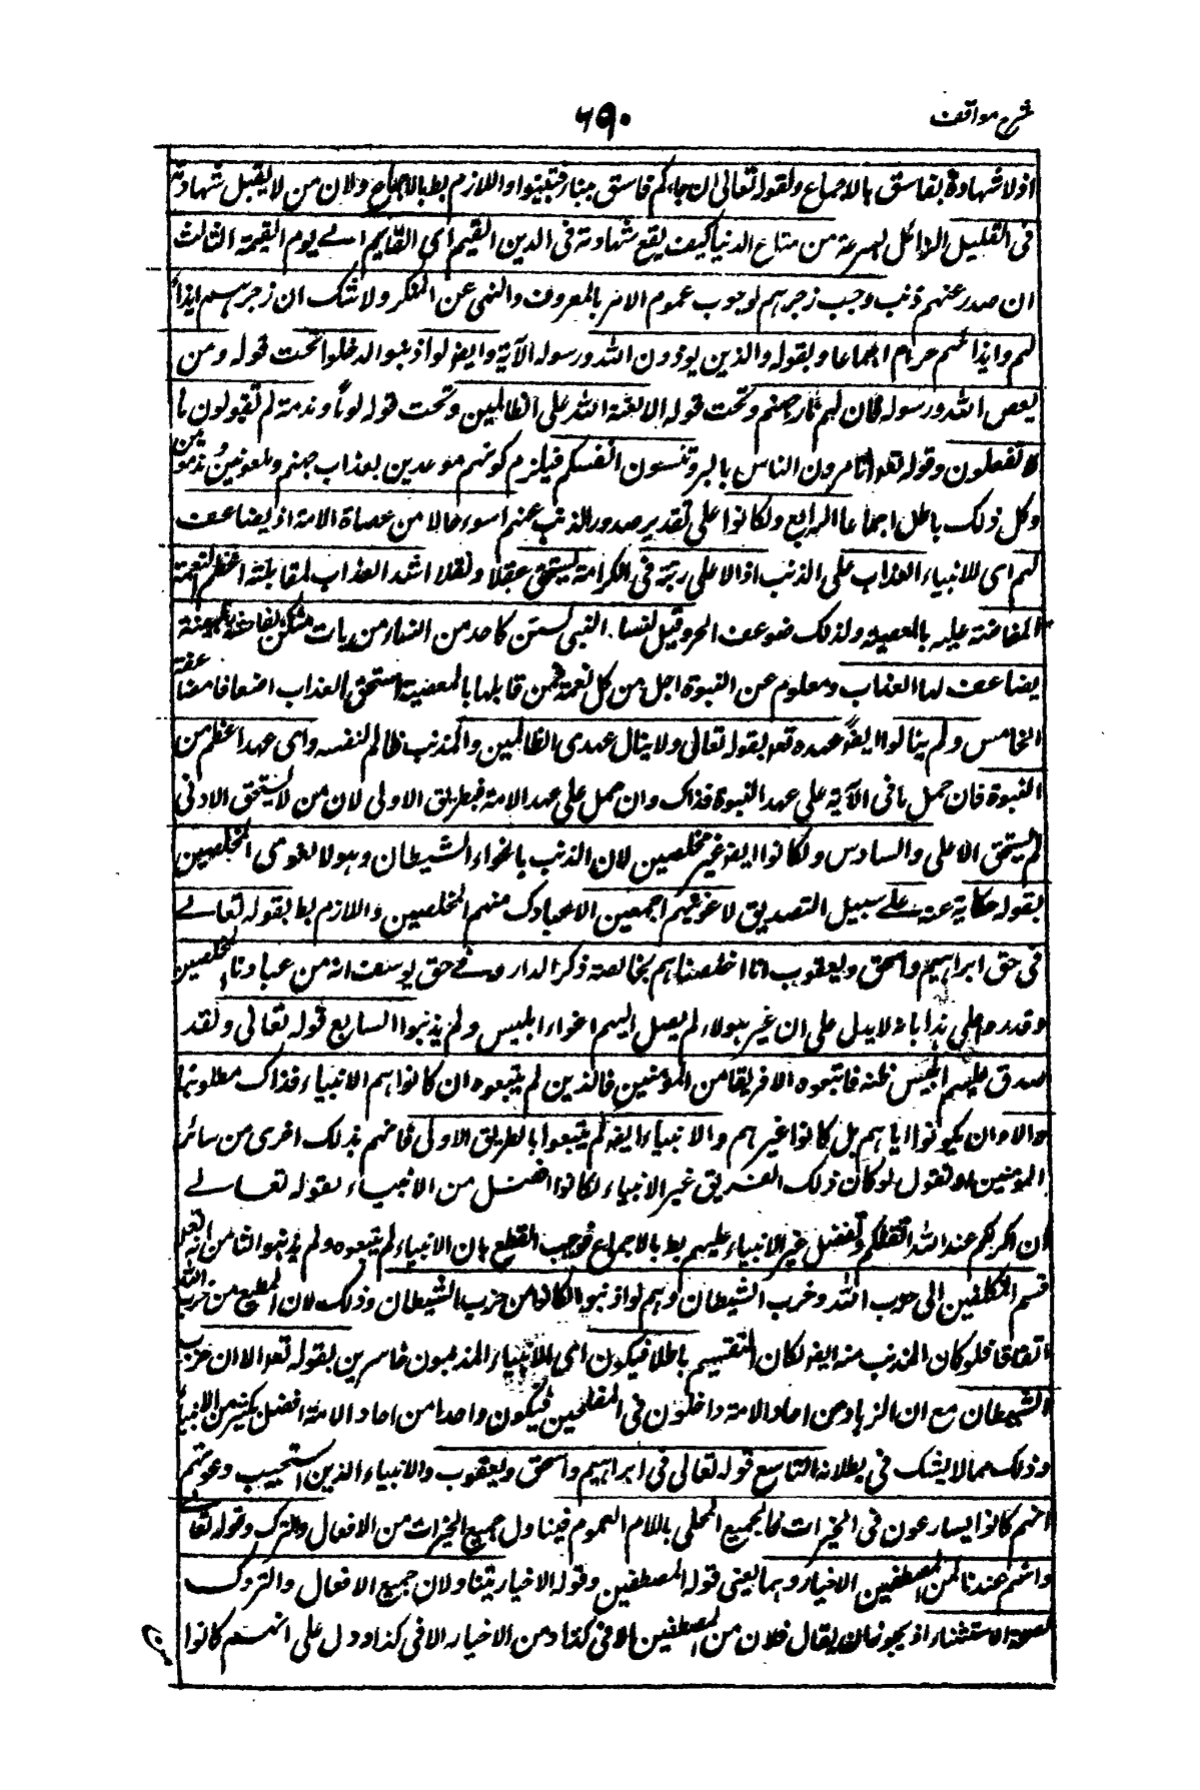 شرح مواقف
٦٩٠
اذ لا شهادة لفاسق بالاجماع ولقوله تعالى ان جاءكم فاسق بنباء فتبينوا واللازم بط بالاجماع ولان من لا يقبل شهادته
فى القليل الزائل بسرعة من متاع الدنيا كيف يقع شهادته فى الدين القيم اى القايم الے يوم القيمة الثالث
ان صدر عنهم ذنب وجب زجرهم لوجوب عموم الامر بالمعروف والنهى عن المنكر ولا شك ان زجرهم ايذاء
لهم وايذائهم حرام اجماعا وبقوله والذين يوذون الله ورسوله الآية وايضا لو اذنبوا لدخلوا تحت قوله ومن
يعص الله ورسوله فان لهم نار جهنم وتحت قوله الا لعنة الله على الظالمين وتحت قوله لوما ومذمة لم تقولون ما
لا تفعلون وقوله تعه اتامرون الناس بالبر وتنسون انفسكم فيلزم كونهم موعدين بعذاب جهنم وملعونين مذمومين
وكل ذلك باطل اجماعا الرابع ولكانوا على تقدير صدور الذنب عنهم اسوء حالا من عصاة الامة اذ يضاعف
لهم اى للانبياء العذاب على الذنب اذ الاعلى رتبة فى الكرامة يستحق عقلا ونقلا اشد العذاب لمقابلته اعظم النعمة
المفاضة عليه بالمعصية ولذلك ضوعف الحر وقيل لنساء النبى لستن كاحد من النساء من يات منكن بفاحشة مبينة
يضاعف لها العذاب ومعلوم عن النبوة اجل من كل نعمة فمن قابلها بالمعصية استحق العذاب اضعافا مضاعفة
الخامس ولم ينالوا ايضا عهده تعه بقوله تعالى ولا ينال عهدى الظالمين والمذنب ظالم لنفسه واى عهد اعظم من
النبوة فان حمل ما فى الآية على عهد النبوة فذاك وان حمل على عهد الامة فبطريق الاولى لان من لا يستحق الادنى
لم يستحق الاعلى والسادس ولكانوا ايضا غير مخلصين لان الذنب باغواء الشيطان وهو لا يغوى المخلصين
بقوله حكاية عنه علے سبيل التصديق لاغوينهم اجمعين الا عبادك منهم المخلصين واللازم بط بقوله تعالے
فى حق ابراهيم واسحق ويعقوب انا اخلصناهم بخالصة ذكر الدار وفے حق يوسف انه من عبادنا المخلصين
وقد رد على هذا بانه لا يدل على ان غير هولاء لم يصل اليهم اغواء ابليس ولم يذنبوا السابع قوله تعالى ولقد
صدق عليهم ابليس ظنه فاتبعوه الا فريقا من المؤمنين فالذين لم يتبعوه ان كانوا هم الانبياء فذاك مطلوبنا
والا وان يكونوا اياهم بل كانوا غيرهم والانبياء ايضا لم يتبعوا بالطريق الاولى فانهم بذلك احرى من سائر
المؤمنين او نقول لو كان ذلك الفريق غير الانبياء لكانوا افضل من الانبياء لقوله تعالے
ان اكرمكم عند الله اتقاكم وتفضيل غير الانبياء عليهم بط بالاجماع فوجب القطع بان الانبياء لم يتبعوه ولم يذنبوا الثامن انه تعه
قسم المكلفين الى حزب الله وحزب الشيطان وهم لو اذنبوا لكانوا من حزب الشيطان وذلك لان المطيع من حزب الله
اتفاقا فلو كان المذنب منه ايضا لكان التقسيم باطلا فيكون اى الانبياء المذنبون خاسرين بقوله تعه الا ان حزب
الشيطان مع ان الزهاد من احاد الامة داخلون فى المفلحين فيكون واحدا من احاد الامة افضل بكثير من الانبياء
وذلك مما لا يشك فى بطلانه التاسع قوله تعالى فى ابراهيم واسحق ويعقوب والانبياء الذين استجيب دعوتهم
انهم كانوا يسارعون فى الخيرات فالجميع المحلى باللام العموم فيتناول جميع الخيرات من الافعال والترك وقوله تعالے
وانهم عندنا لمن المصطفين الاخيار وهما يعنى قوله المصطفين وقوله الاخيار يتناولان جميع الافعال والتروك
لصحة الاستثناء اذ يجوز ان يقال فلان من المصطفين الا فى كذا ومن الاخيار الا فى كذا ودل على انهم كانوا